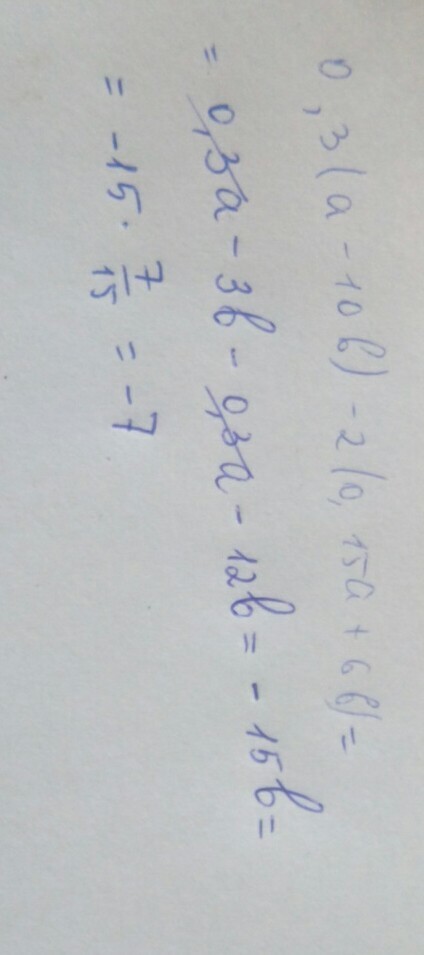 0,3(a - 10b) - 2(0,15a + 6b) =
= 0,3a - 3b - 0,3a - 12b = - 15b =
= -15 · 7/15 = -7